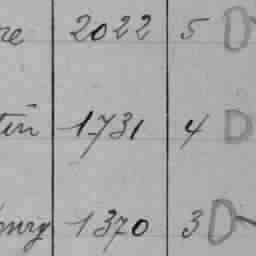 re 2022 5 D
tin 1731 4 D
burg 1370 3 D